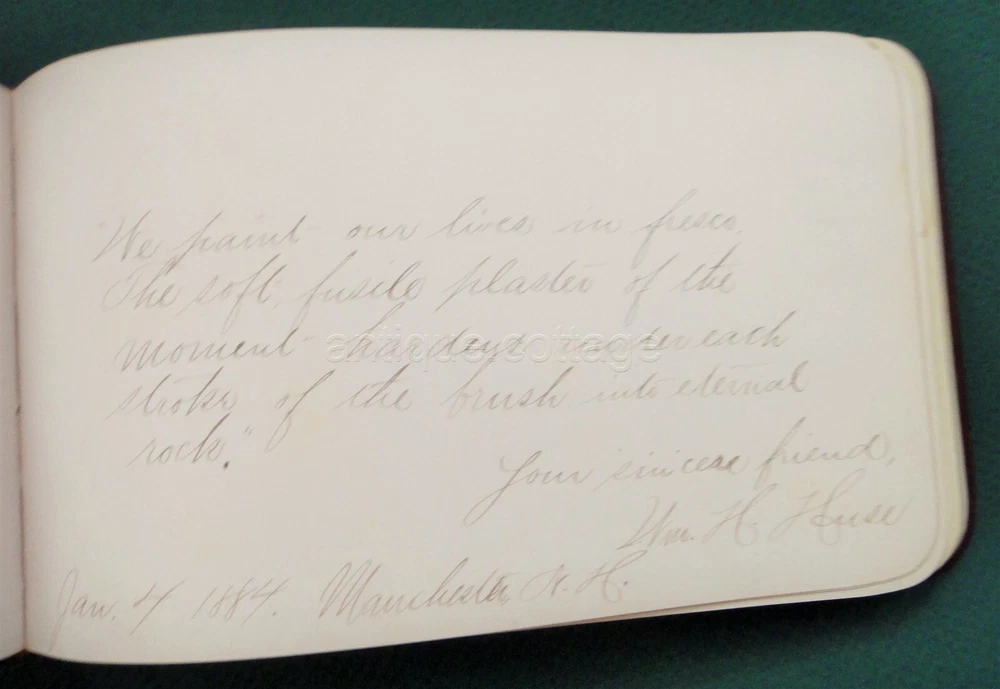 "We paint our lives in fresco.
The soft, fusile plaster of the
moment hardens under each
stroke of the brush into eternal
rock."
Your sincere friend,
Wm. H. Huse
Jan. 4 1884. Manchester N. H.
antique cottage